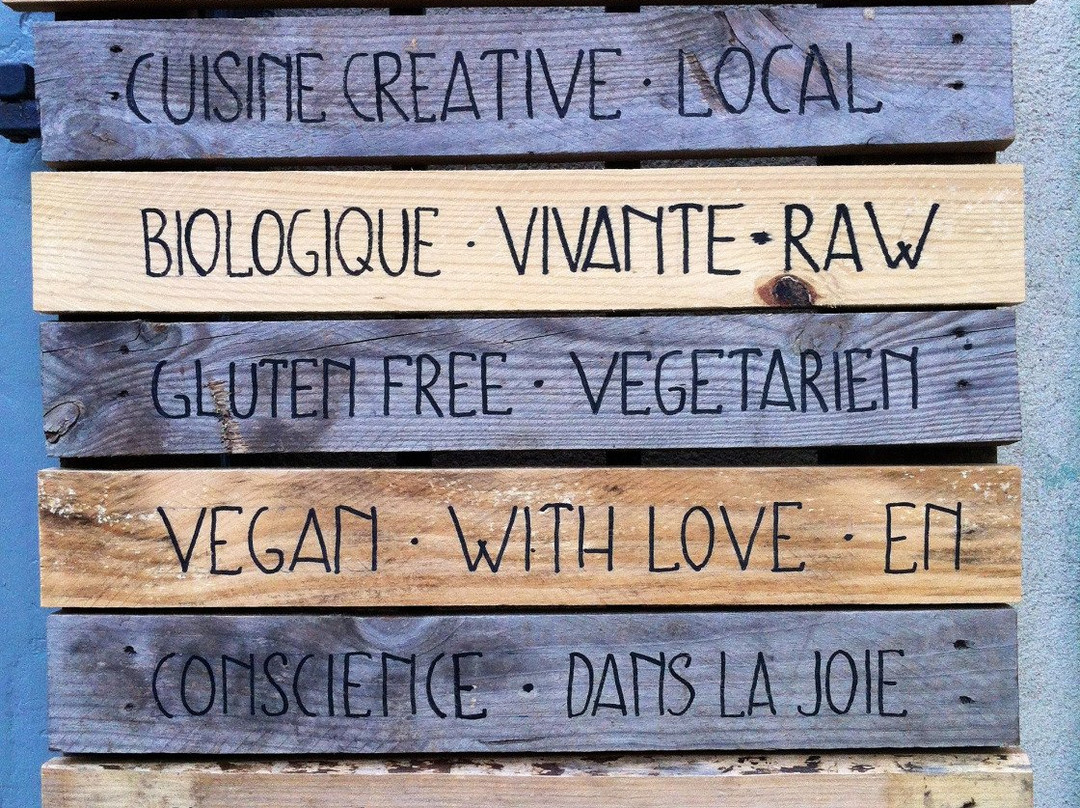 CUISINE CREATIVE · LOCAL
BIOLOGIQUE · VIVANTE · RAW
GLUTEN FREE · VEGETARIEN
VEGAN · WITH LOVE · EN
CONSCIENCE · DANS LA JOIE